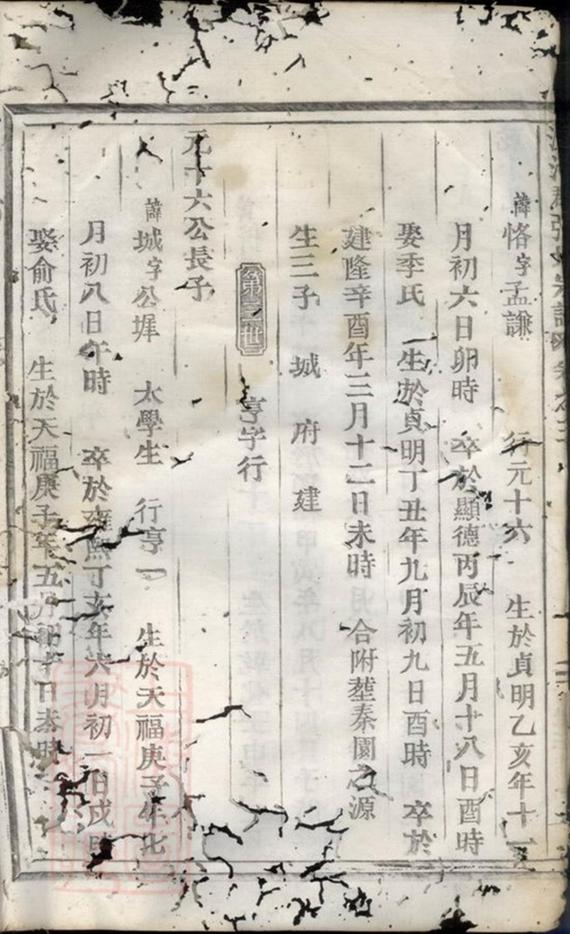 諱恪字孟謙 行元十六 生於貞明乙亥年十
月初六日卯時 卒於顯德丙辰年五月十八日酉時
娶季氏 生於貞明丁丑年九月初九日酉時 卒於
建隆辛酉年三月十二日未時 合附塟秦園之源
生三子 城 府 建
第三世 亨字行
元十六公長子
諱城字公墀 太學生 行亨一 生於天福庚子年
月初八日午時 卒於雍熙丁亥年六月初一日戌時
娶俞氏 生於天福庚子年五月日時